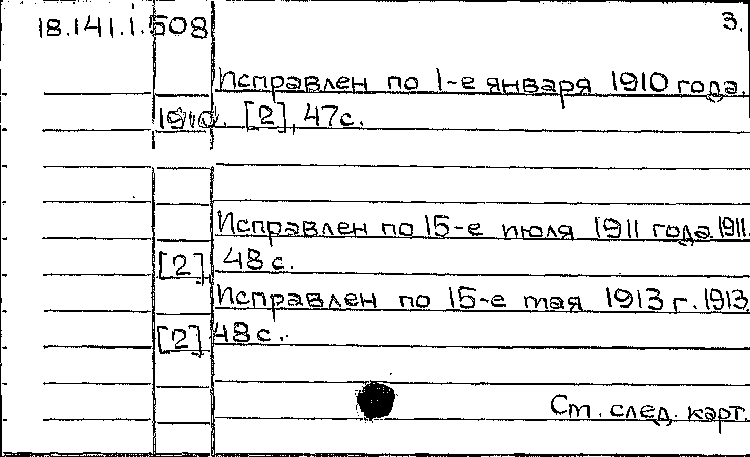 18.141.1.508 3.
Исправлен по 1-е января 1910 года.
1910. [2], 47с.
Исправлен по 15-е июля 1911 года. 1911.
[2], 48 с.
Исправлен по 15-е мая 1913 г. 1913
[2], 48 с.
См. след. карт.